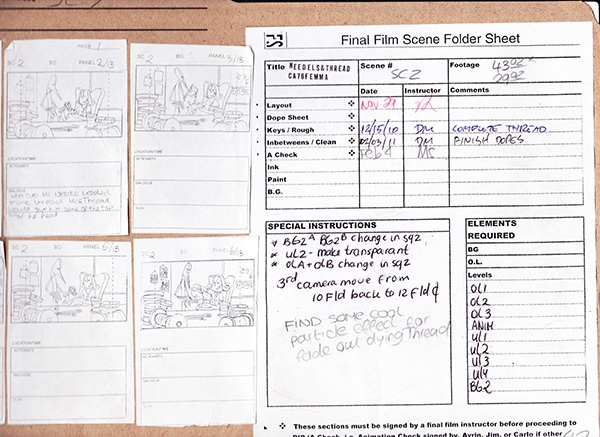 PAGE 1
SC 2 BG PANEL 2/13
LOCATION/TIME
ACTION/SFX
DIALOGUE
SC 2 BG PANEL 3/13
LOCATION/TIME
ACTION/SFX
DIALOGUE
2 BG PANEL 5/13
LOCATION/TIME
ACTION/SFX
DIALOGUE
SC 2 BG PANEL 6/13
LOCATION/TIME
ACTION/SFX
DIALOGUE
Final Film Scene Folder Sheet
Title NEEDELS & THREAD
CA7GFEMMA
Scene #
SC2
Footage
Date Instructor Comments
Layout NOV 29
Dope Sheet
Keys / Rough 12/15/10 DM COMPLETE THREAD
Inbetweens / Clean 02/03/11 DM FINISH DOPES
A Check Feb 4 MS
Ink
Paint
B.G.
SPECIAL INSTRUCTIONS
* BG2A BG2B change in sq2
* UL2 - make transparant
* OLA + OLB change in sq2
3rd camera move from
10 Fld back to 12 Fld ¢
FIND SOME COOL
particle effect for
fade out dying Thread
ELEMENTS
REQUIRED
BG
O.L.
Levels
OL1
OL2
OL3
ANIM
UL1
UL2
UL3
UL4
BG2
These sections must be signed by a final film instructor before proceeding to
Animation Check signed by, Avrin, Jim, or Carlo if other